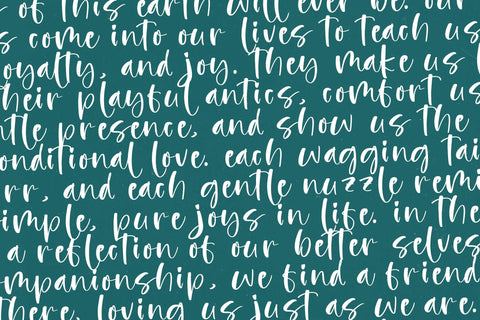 of this earth will ever be. our
s come into our lives to teach us
oyalty, and joy. they make us l
their playful antics, comfort us
ntle presence, and show us the
onditional love. each wagging tai
rr, and each gentle nuzzle remi
imple, pure joys in life. in the
a reflection of our better selves
mpanionship, we find a friend
there, loving us just as we are.